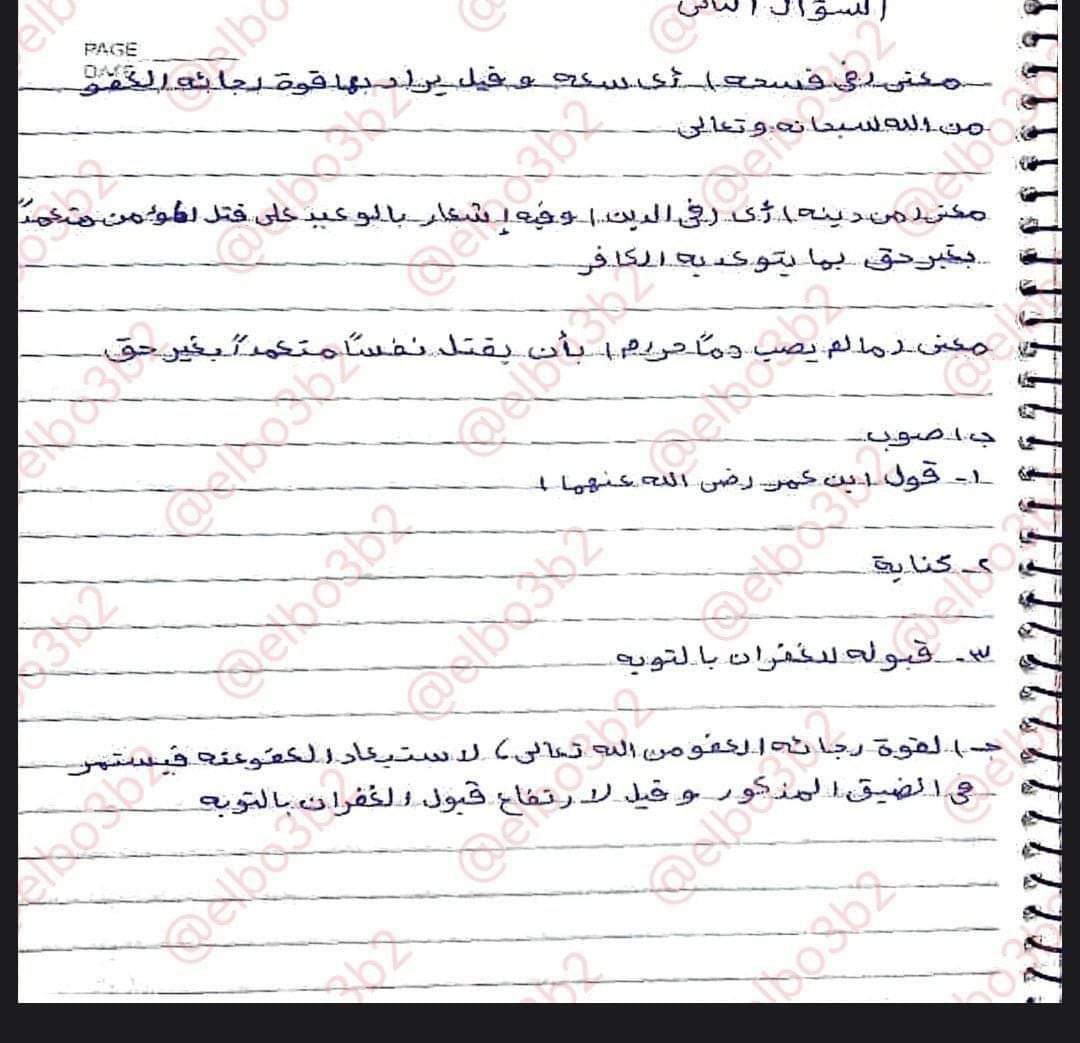 السؤال الثاني
PAGE
DATE
معنى (في فسحه) أى سعه وقيل يراد بها قوة رجائه العفو
من الله سبحانه وتعالى
معنى (من دينه) أى (في الدين) وفيه إشعار بالوعيد على قتل المؤمن متعمداً
بغير حق بما يتوعد به الكافر
معنى (مالم يصب دمًا حرام) بأن يقتل نفسًا متعمداً بغير حق
ب) صوب
١- قول ابن عمر رضى الله عنهما)
٢- كناية
٣- قبوله للغفران بالتوبه
جـ) لقوة رجائه العفو من الله تعالى) لاستبعاد العفو عنه فيستمر
فى الضيق المذكور وقيل لارتفاع قبول الغفران بالتوبه
@elbo3b2